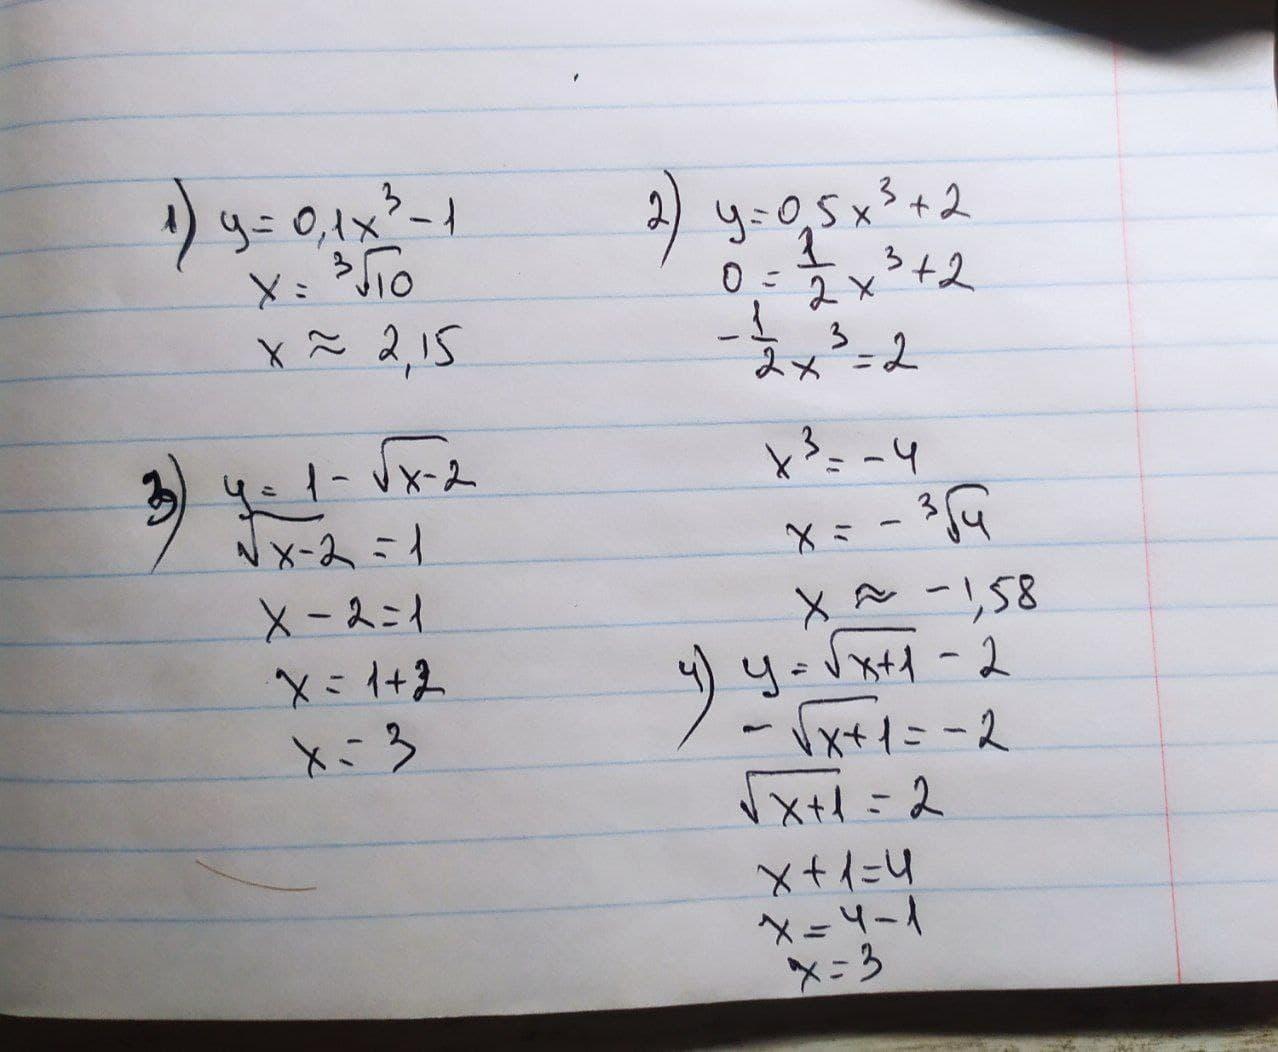 1) y = 0,1x³ - 1
x = ³√10
x ≈ 2,15
2) y = 0,5x³ + 2
0 = 1/2 x³ + 2
-1/2 x³ = 2
x³ = -4
x = -³√4
x ≈ -1,58
3) y = 1 - √(x-2)
√(x-2) = 1
x - 2 = 1
x = 1 + 2
x = 3
4) y = √(x+1) - 2
-√(x+1) = -2
√(x+1) = 2
x + 1 = 4
x = 4 - 1
x = 3